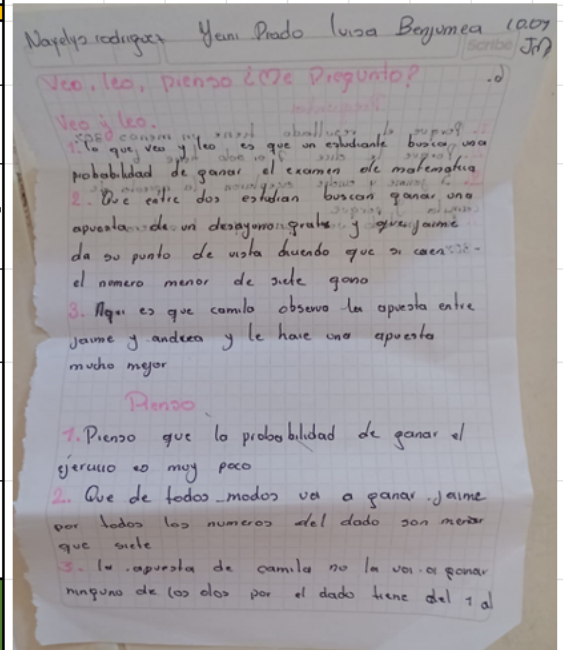 Nayelys rodriguez Yeini Prado luisa Benjumea 10.07
Scribe JM
Veo, leo, pienso ¿Me Pregunto?
Veo y leo.
1. lo que veo y leo es que un estudiante busca una
probabilidad de ganar el examen de matematica
2. Que entre dos estudian buscan ganar una
apuesta de un desayuno gratis y que jaime
da su punto de vista diciendo que si caen
el numero menor de siete gano
3. Aqui es que camilo observa la apuesta entre
jaime y andrea y le hace una apuesta
mucho mejor
Pienso
1. Pienso que la probabilidad de ganar el
ejercicio es muy poco
2. Que de todos modos va a ganar jaime
por todos los numeros del dado son menor
que siete
3. la apuesta de camila no la va a ganar
ninguno de los dos por el dado tiene del 1 al